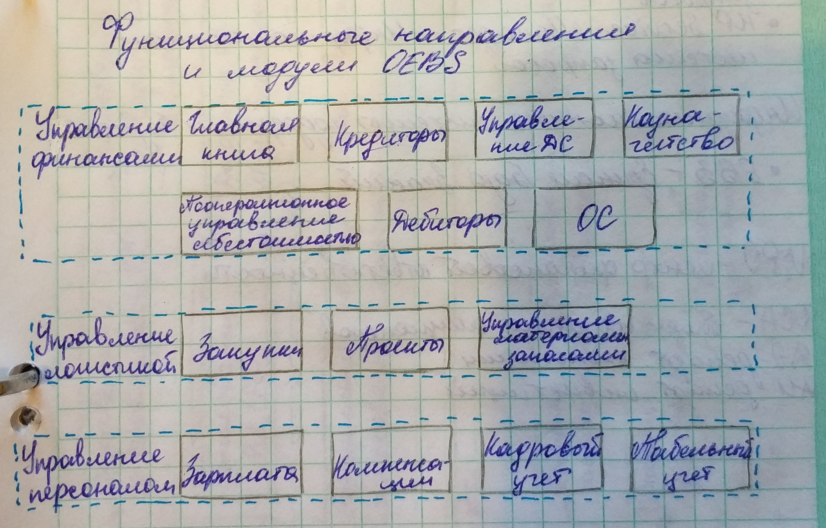 Функциональные направления
и модули OEBS
Управление
финансами
Главная
книга
Кредиторы
Управле-
ние ДС
Казна-
чейство
Пооперационное
управление
себестоимостью
Дебиторы
ОС
Управление
логистикой
Закупки
Проекты
Управление
материальн.
запасами
Управление
персоналом
Зарплата
Компенса-
ции
Кадровый
учет
Табельный
учет